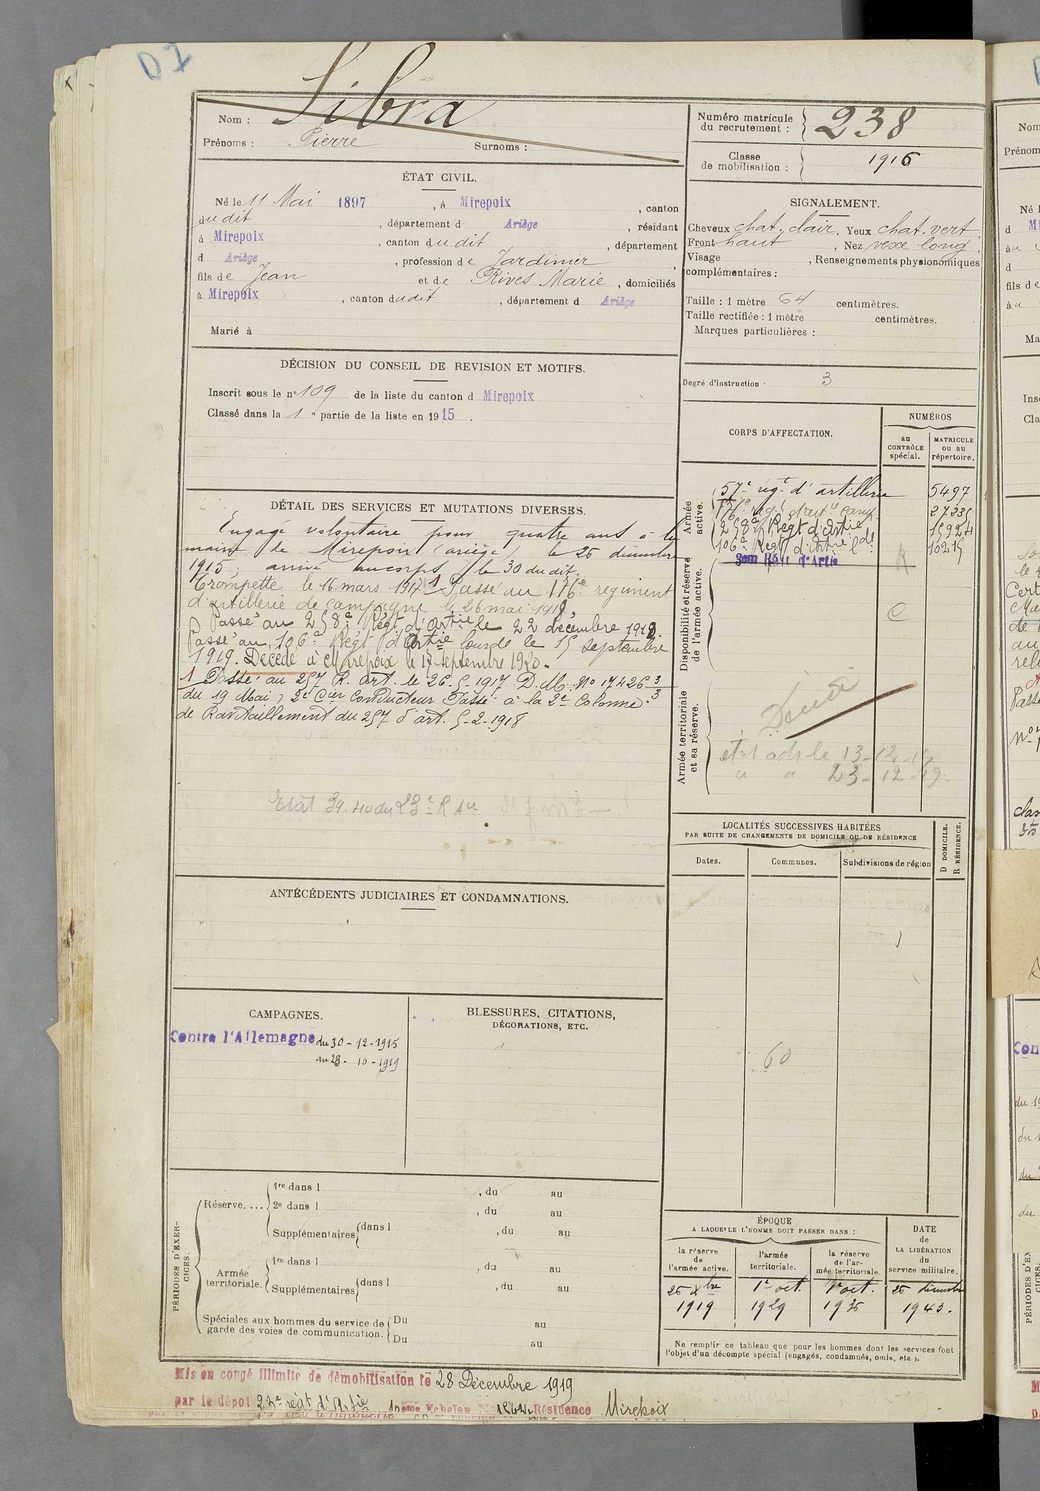 D7
Nom : Sibra
Prénoms : Pierre Surnoms :
Numéro matricule du recrutement : 238
Classe de mobilisation : 1915
ÉTAT CIVIL.
Né le 11 Mai 1897, à Mirepoix, canton
du dit, département d Ariège, résidant
à Mirepoix, canton du dit, département
d Ariège, profession de Jardinier
fils de Jean et de Rives Marie, domiciliés
à Mirepoix, canton du dit, département d Ariège
Marié à
SIGNALEMENT.
Cheveux chat. clair, Yeux chat. vert
Front haut, Nez vexe long
Visage , Renseignements physionomiques
complémentaires :
Taille : 1 mètre 64 centimètres.
Taille rectifiée : 1 mètre centimètres.
Marques particulières :
Degré d'instruction : 3
DÉCISION DU CONSEIL DE REVISION ET MOTIFS.
Inscrit sous le n° 109 de la liste du canton d Mirepoix
Classé dans la 1e partie de la liste en 1915.
CORPS D'AFFECTATION.
NUMÉROS
au CONTRÔLE spécial.
MATRICULE ou au répertoire.
Armée active.
57e régt d'artillerie 5497
176e régt d'art. camp
258e Régt d'Artie 15924
106e Régt d'Artie Lde 10215
Régt d'Artie
Disponibilité et réserve de l'armée active.
C
Armée territoriale et sa réserve.
Décédé
13-12-19
" " 23-12-19.
DÉTAIL DES SERVICES ET MUTATIONS DIVERSES.
Engagé volontaire pour quatre ans à la
mairie de Mirepoix (ariège) le 26 décembre
1915, arrivé au corps le 30 du dit.
Trompette le 16 mars 1917 1 Passé au 176e régiment
d'artillerie de campagne le 26 mai 1918,
Passé au 258e Régt d'Artie le 22 décembre 1918.
Passé au 106e Régt d'Artie lourde le 15 Septembre
1919. Décédé à Mirepoix le 17 septembre 1920.
1 Passé au 257 R. art. le 26-5-1917 D.M. No 17426 3/3
du 19 Mai, 2e Cer Conducteur Passé à la 2e Colonne
de Ravitaillement du 257 d'art. 5-2-1918
LOCALITÉS SUCCESSIVES HABITÉES
PAR SUITE DE CHANGEMENTS DE DOMICILE OU DE RÉSIDENCE
Dates.
Communes.
Subdivisions de région
D DOMICILE.
R RÉSIDENCE.
60
ANTÉCÉDENTS JUDICIAIRES ET CONDAMNATIONS.
CAMPAGNES.
Contre l'Allemagne du 30-12-1915
au 28-10-1919
BLESSURES, CITATIONS,
DÉCORATIONS, ETC.
PÉRIODES D'EXERCICES.
Réserve....
1re dans l , du au
2e dans l , du au
Supplémentaires dans l , du au
Armée territoriale.
1re dans l , du au
Supplémentaires dans l , du au
Spéciales aux hommes du service de garde des voies de communication.
Du au
Du au
ÉPOQUE
A LAQUELLE L'HOMME DOIT PASSER DANS :
la réserve de l'armée active.
l'armée territoriale.
la réserve de l'armée territoriale.
DATE de LA LIBÉRATION du service militaire.
26 Xbre 1919
1er oct. 1929
1er oct. 1935
26 décembre 1940.
Ne remplir ce tableau que pour les hommes dont les services font
l'objet d'un décompte spécial (engagés, condamnés, omis, etc.).
Mis en congé illimité de démobilisation le 28 Décembre 1919
par le dépôt régt d'Artie Echelon Résidence Mirepoix